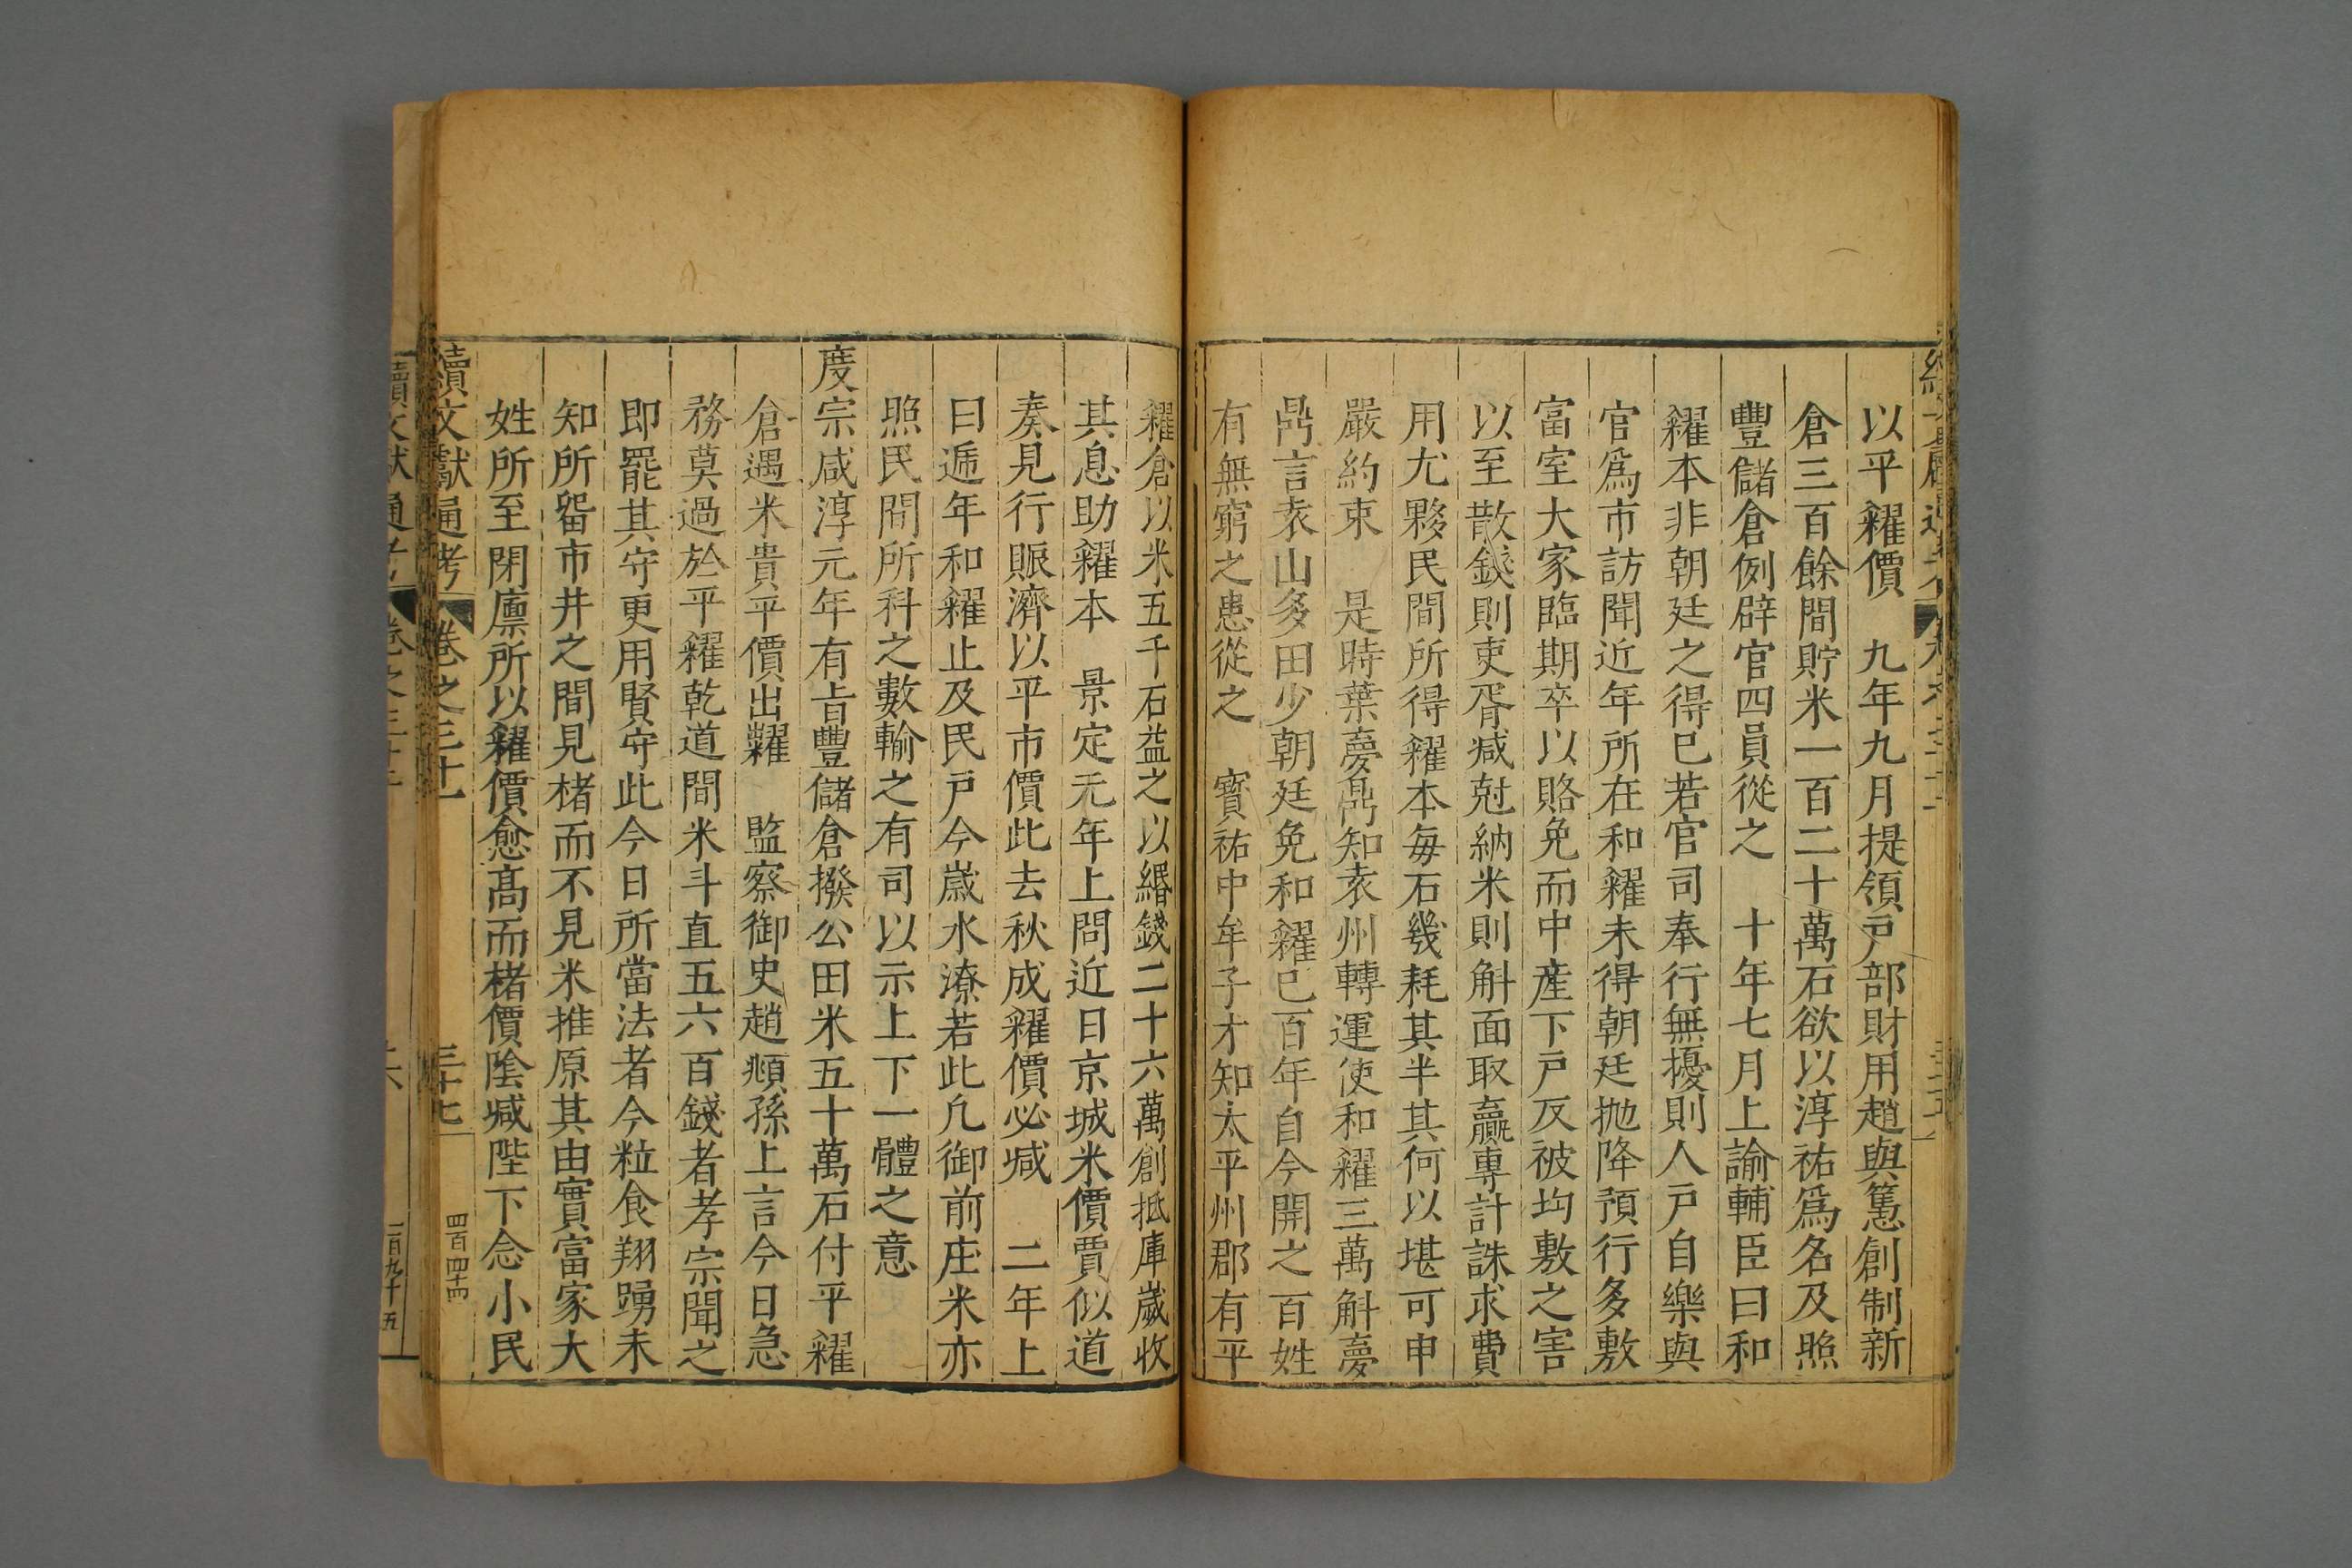 以平糴價　九年九月提領戸部財用趙與𥲅創制新
倉三百餘間貯米一百二十萬石欲以淳祐爲名及照
豐儲倉例辟官四員從之　十年七月上諭輔臣曰和
糴本非朝廷之得已若官司奉行無擾則人戸自樂與
官爲市訪聞近年所在和糴未得朝廷抛降預行多敷
富室大家臨期卒以賂免而中產下戸反被均敷之害
以至散錢則吏胥减尅納米則斛面取贏專計誅求費
用尤夥民間所得糴本每石幾耗其半其何以堪可申
嚴約束　是時葉夢鼎知袁州轉運使和糴三萬斛夢
鼎言袁山多田少朝廷免和糴已百年自今開之百姓
有無窮之患從之　寳祐中牟子才知太平州郡有平
糴倉以米五千石益之以緡錢二十六萬創抵庫歲收
其息助糴本　景定元年上問近日京城米價賈似道
奏見行賑濟以平市價此去秋成糴價必减　二年上
曰逓年和糴止及民戸今歲水潦若此凡御前庄米亦
照民間所科之數輸之有司以示上下一體之意
度宗咸淳元年有旨豐儲倉撥公田米五十萬石付平糴
倉遇米貴平價出糶　監察御史趙順孫上言今日急
務莫過於平糴乾道間米斗直五六百錢者孝宗聞之
即罷其守更用賢守此今日所當法者今粒食翔踴未
知所届市井之間見楮而不見米推原其由實富家大
姓所至閉廪所以糴價愈髙而楮價隂减陛下念小民
續文獻通考　卷之三十一　三十七　四百四十四
續文獻通考　卷之三十　　二百九十五